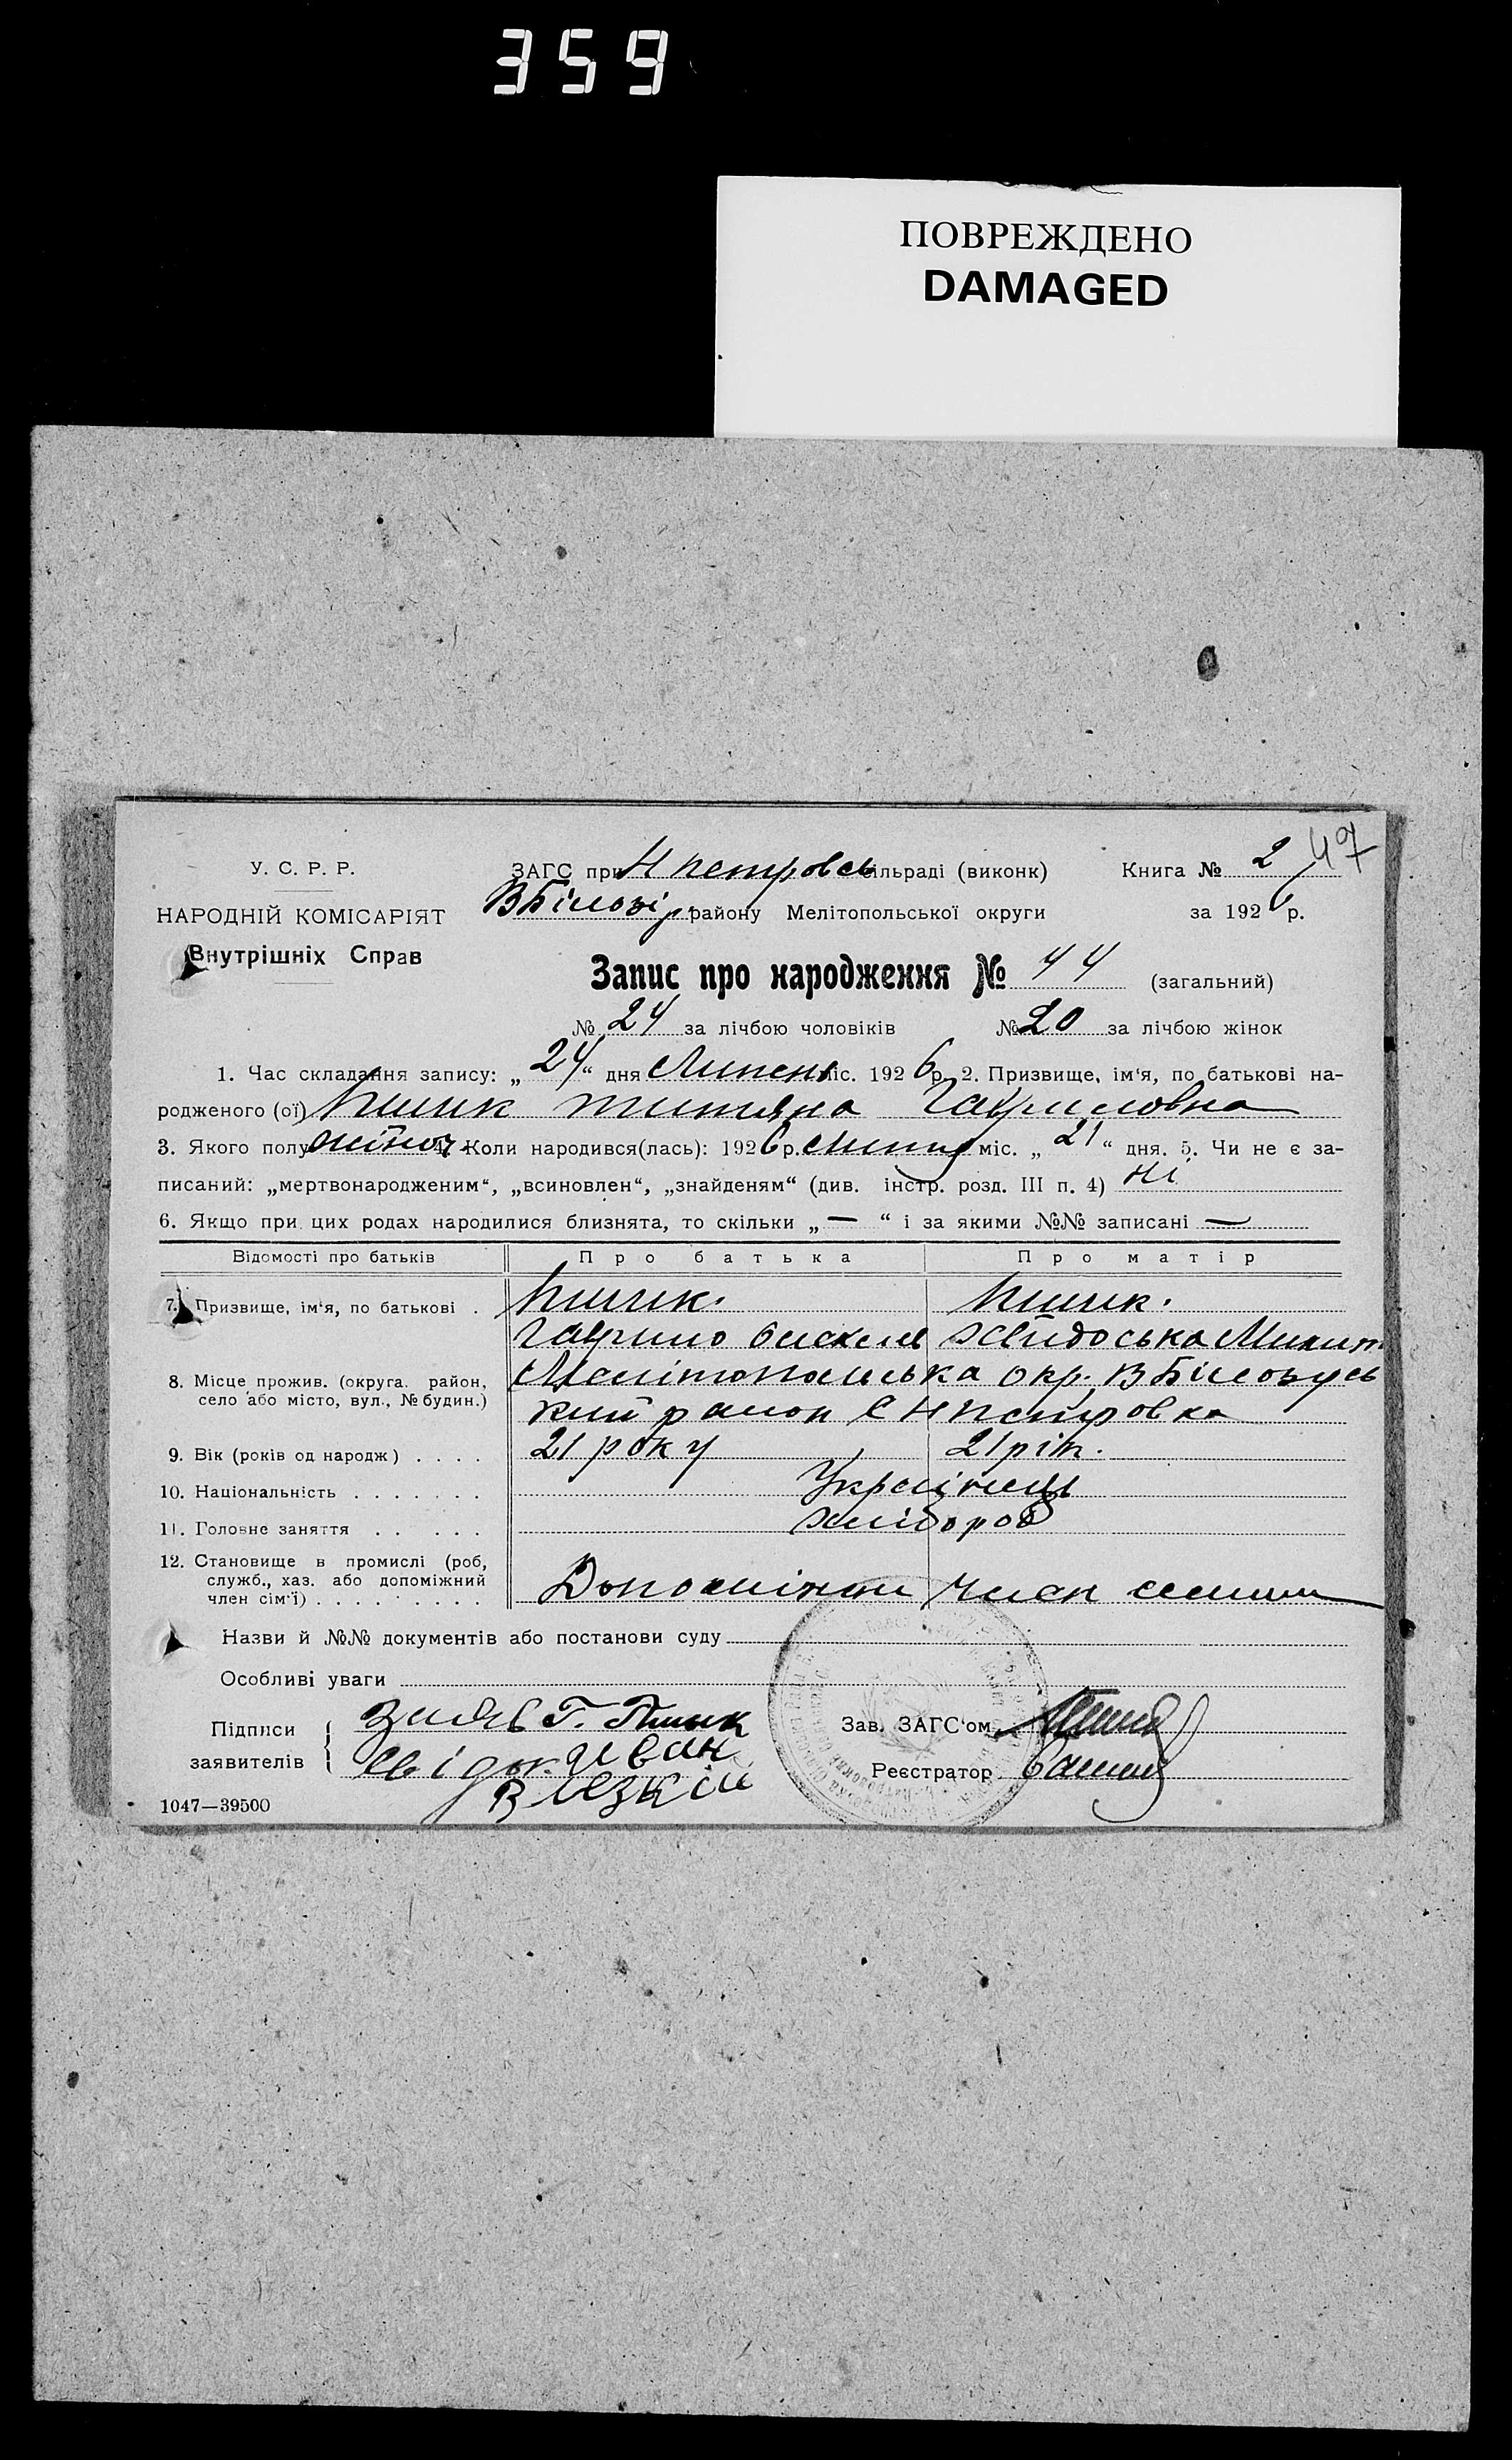 359
ПОВРЕЖДЕНО
DAMAGED
У. С. Р. Р.
НАРОДНІЙ КОМІСАРІЯТ
Внутрішніх Справ
ЗАГС при Н петровсь сільраді (виконк)
Книга № 2 47
ВБілозір району Мелітопольської округи
за 1926 р.
Запис про народження № 44 (загальний)
№ 24 за лічбою чоловіків № 20 за лічбою жінок
1. Час складання запису: „24“ дня Липень міс. 1926 р. 2. Призвище, ім‘я, по батькові на-
родженого (ої) Пшик Титяна Гавриловна
3. Якого полу жіноч 4. Коли народився(лась): 1926 р. Липня міс. „21“ дня. 5. Чи не є за-
писаний: „мертвонародженим“, „всиновлен“, „знайденям“ (див. інстр. розд. III п. 4) ні
6. Якщо при цих родах народилися близнята, то скільки „—“ і за якими №№ записані —
Відомості про батьків Про батька Про матір
7. Призвище, ім‘я, по батькові . Пшик. Пшик.
Гаврило Хвидоська Микит.
8. Місце прожив. (округа, район, Мелітопольська окр. ВБілозурсь
село або місто, вул., № будин.) кий район с Н петровка
9. Вік (років од народж) . . . . 21 року 21 рік.
10. Національність . . . . . . . Українець
11. Головне заняття . . . . . Хлібороб
12. Становище в промислі (роб,
служб., хаз. або допоміжний
член сім‘ї) . . . . . . . . . Допоміжни член
Назви й №№ документів або постанови суду
Особливі уваги
Підписи
заявителів
Заяв Г. Пшик
Свідк. Иван
Зав. ЗАГС‘ом
Реєстратор
1047—39500